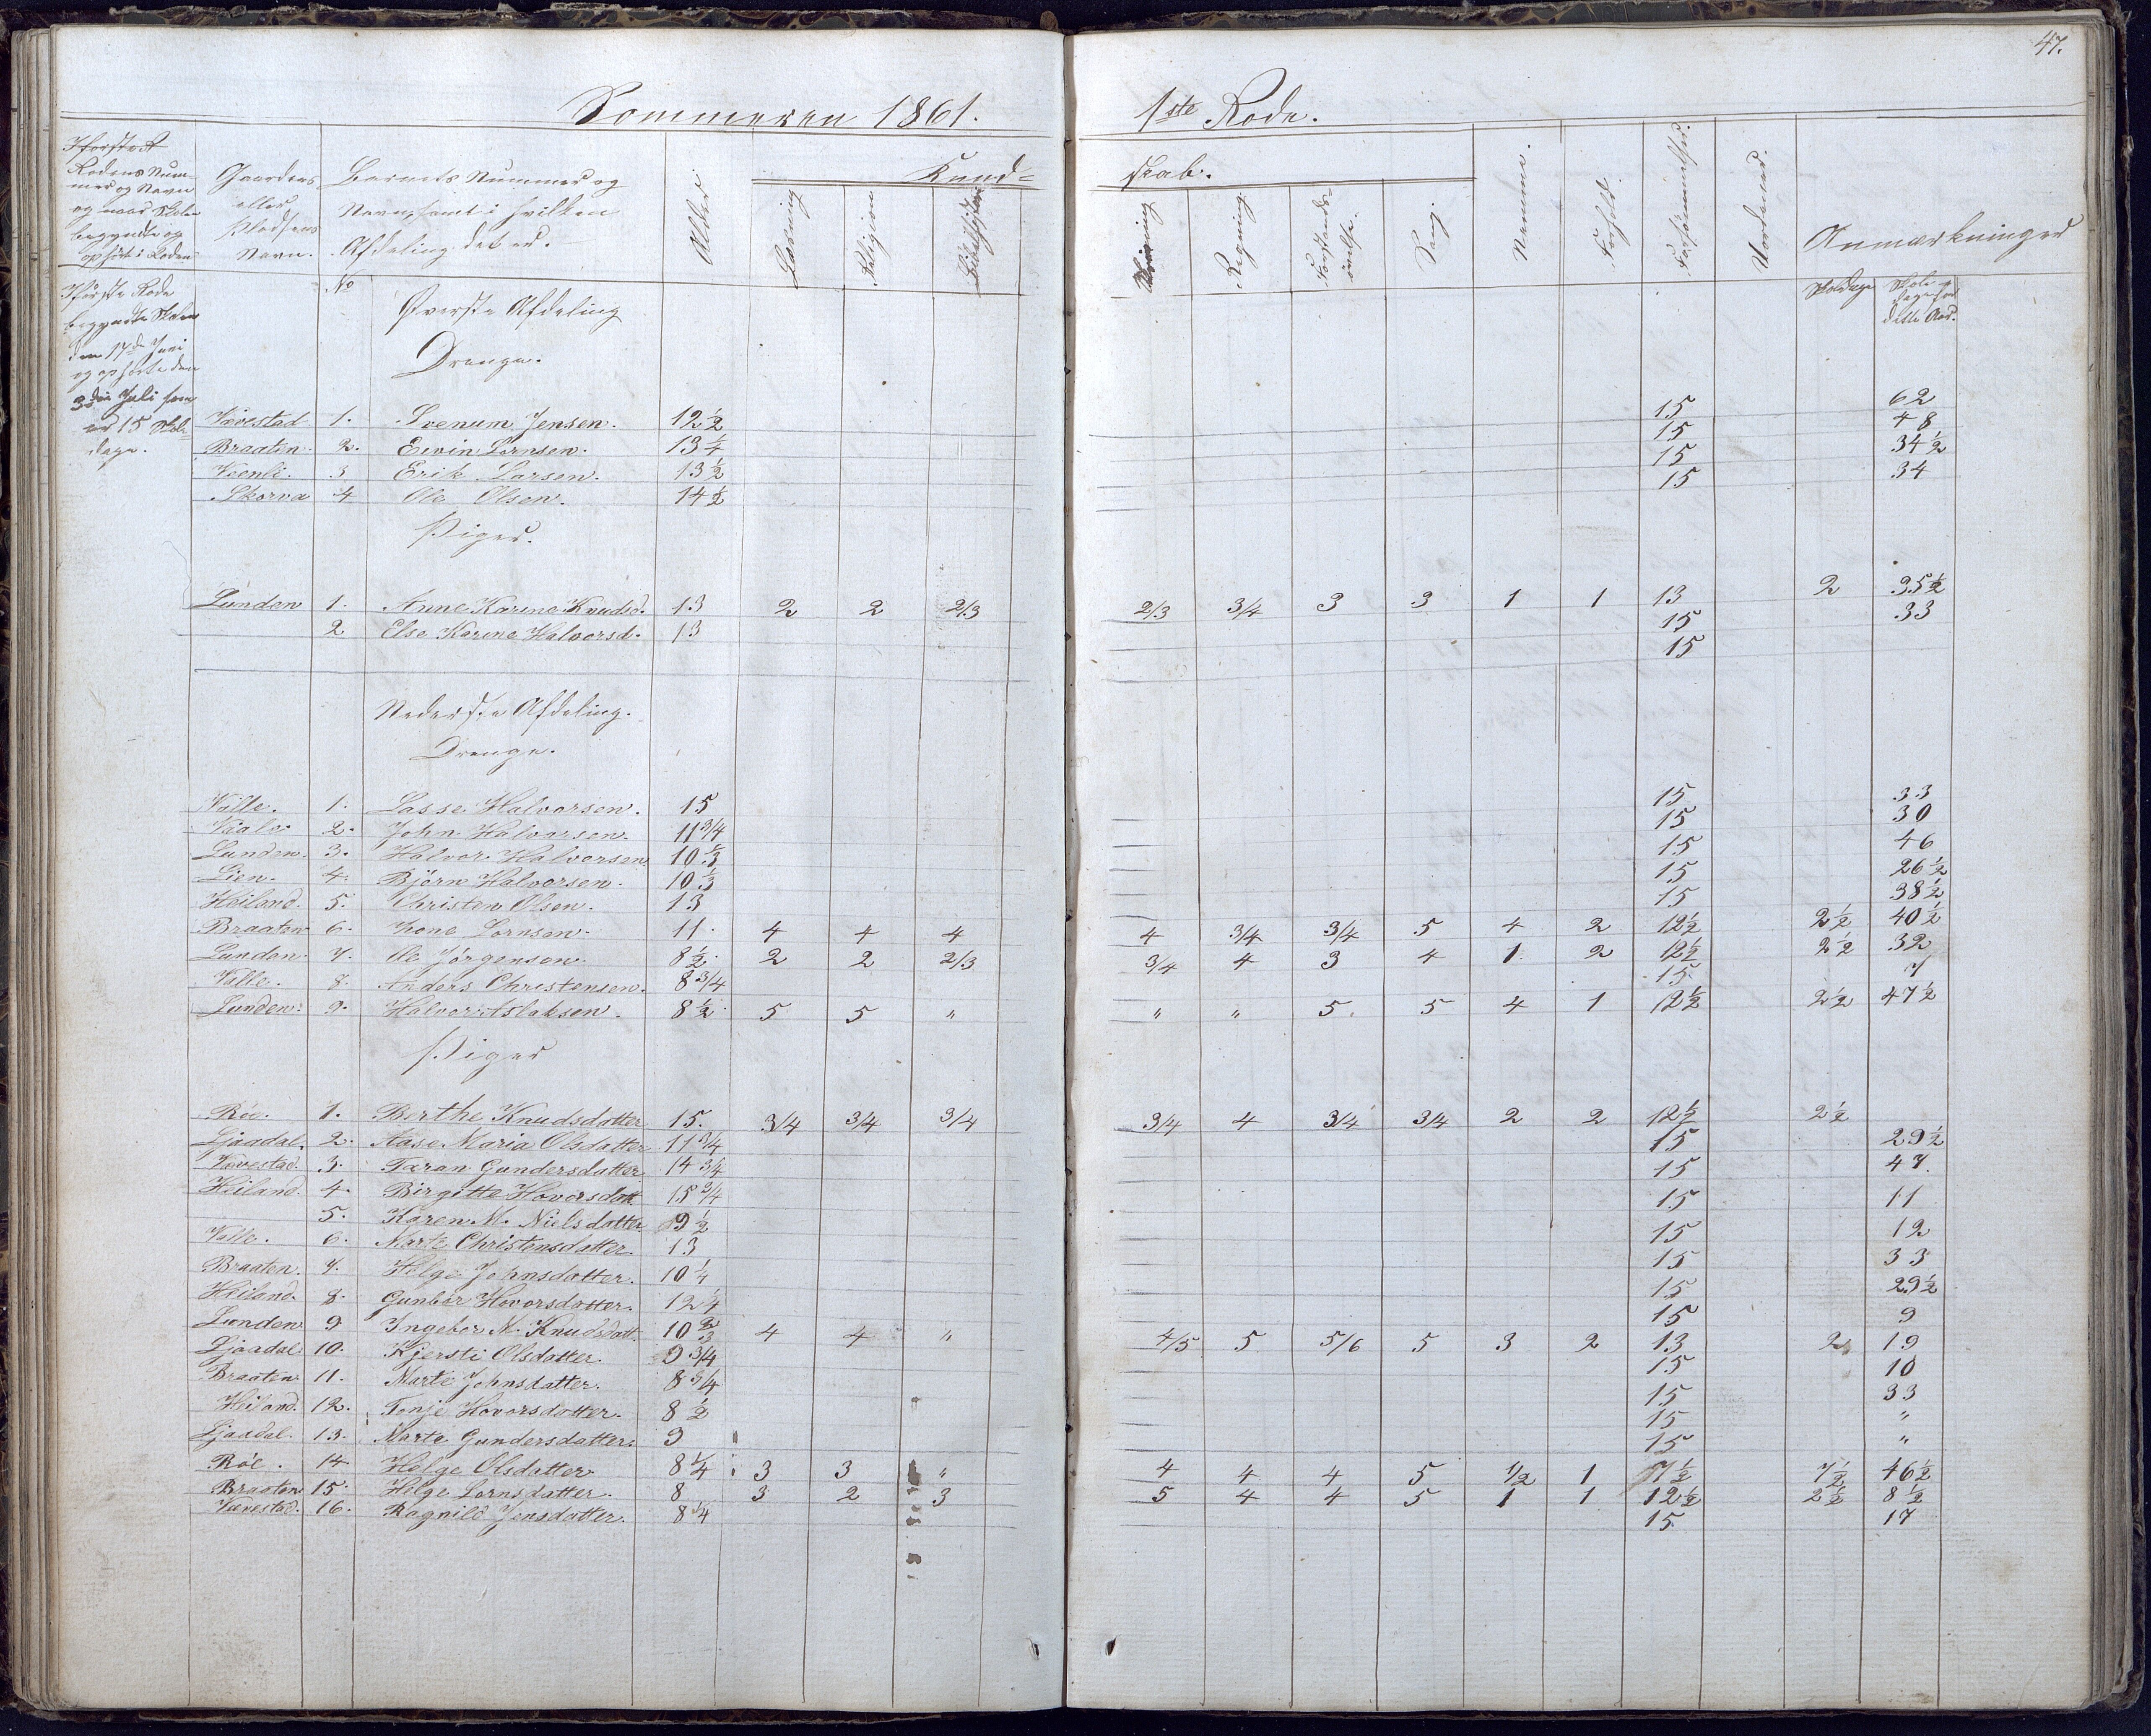 47.
Sommeren 1861. 1ste Rode.
Rodens Nummer og Navn og naar Skolen begyndte og ophørte i Roden
Gaardens eller Pladsens Navn.
Barnets Nummer og Navn, samt i hvilken Afdeling det er.
Alder
Kundskab.
Læsning
Religion
Bibelhistorie
Skrivning
Regning
Forstandsøvelse.
Sang.
Nemme.
Forhold.
Forsømmelser.
Anmærkninger
Skoledage
Skoledage for dette Aar.
No
I første Rode
begyndte Skolen
den 17de Juni
og ophørte den
3die Juli som
er 15 Skole-
dage.
Øverste Afdeling
Drenge.
Vævestad 1. Svenum Jensen. 12 1/2 15 62
Braaten 2. Eivin Lornsen. 13 1/4 15 48
Veenli. 3 Erik Larsen. 13 1/2 15 34 1/2
Skorva 4 Ole Olsen. 14 1/2 15 34
Piger.
Lunden 1. Anne Karine Knudsd. 13 2 2 2/3 2/3 3/4 3 3 1 1 13 2 35 1/2
2 Else Karine Halvorsd. 13 15 33
15
Nederste Afdeling.
Drenge.
Valle. 1. Lasse Halvorsen. 15 15 33
Vaale. 2. John Halvorsen. 11 3/4 15 30
Lunden. 3. Halvor Halvorsen 10 1/3 15 46
Lien. 4. Björn Halvorsen. 10 1/3 15 26 1/2
Heiland. 5. Christen Olsen. 13 15 38 1/2
Braaten 6. Lornsen. 11. 4 4 4 4 3/4 3/4 5 4 2 12 1/2 2 1/2 40 1/2
Lunden. 7. Ole Jörgensen. 8 1/2 2 2 2/3 3/4 4 3 4 1. 2 12 1/2 2 1/2 32
Valle. 8. Anders Christensen. 8 3/4 15. 7
Lunden. 9. Halvor Aslaksen. 8 1/2 5 5 " " " 5. 5 4 1 12 1/2 2 1/2 47 1/2
Piger
Röe. 1. Berthe Knudsdatter 15. 3/4 3/4 3/4 3/4 4 3/4 3/4 2 2 12 1/2 2 1/2
Ljaadal. 2. Aase Maria Olsdatter 11 3/4 15 29 1/2
Vævestad. 3. Taran Gundersdatter 14 3/4 15 47.
Heiland. 4. Birgitte Hovorsdatt 15 3/4 15 11
5. Karen M. Nielsdatter 9 1/2 15 12
Valle. 6. Marte Christensdatter. 13 15 33
Braaten. 7. Helge Johnsdatter. 10 1/4 15 29 1/2
Heiland. 8. Gunbor Hovorsdatter. 12 1/4 15 9
Lunden 9 Ingebor M. Knudsdatt. 10 2/3 4 4 " 4/5 5 5/6 5 3 2 13 2 19
Ljaadal. 10. Kjersti Olsdatter. 9 3/4 15 10
Braaten 11. Marte Johnsdatter. 8 3/4 15 33
Heiland. 12. Tonje Hovorsdatter. 8 1/2 15 "
Ljaadal. 13. Marte Gundersdatter. 9 15 "
Röe. 14 Helge Olsdatter 8 1/4 3 3 " 4 4 4 5 1/2 1 7 1/2 7 1/2 46 1/2
Braaten 15. Helge Lornsdatter. 8 3 2 3 5 4 4 5 1 1 12 1/2 2 1/2 8 1/2
Vævestad. 16. Ragnild Jensdatter. 8 1/4 15. 17